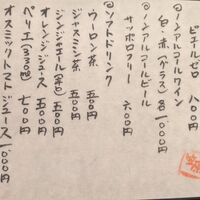 ビエールゼロ 八〇〇円
◎ノンアルコールワイン
白・赤(グラス)各一〇〇〇円
◎ノンアルコールビール
サッポロフリー 六〇〇円
◎ソフトドリンク
ウーロン茶 五〇〇円
ジャスミン茶 五〇〇円
ジンジャエール(辛口) 五〇〇円
オレンジジュース 五〇〇円
ペリエ(330㎖) 七〇〇円
オスミックトマトジュース 一〇〇〇円